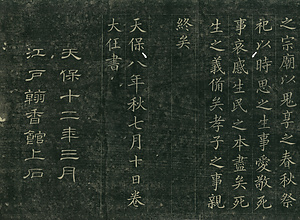 之宗廟以鬼享之春秋祭
祀以時思之生事愛敬死
事哀慼生民之本盡矣死
生之義備矣孝子之事親
終矣
天保八年秋七月十日卷
大任書
天保十二年三月
江戶翰香館上石